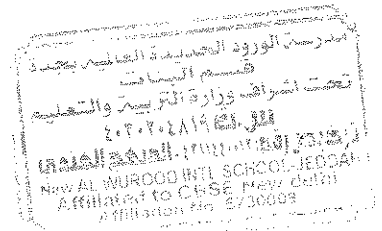 مدرسة الورود الحديثة العالمية بجدة
قسم البنات
تحت اشراف وزارة التربية والتعليم
المنهج الهندي
New AL WUROOD INTL SCHOOL-JEDDAH
Affiliated to CBSE, New delhi
Affiliation No. 5730009